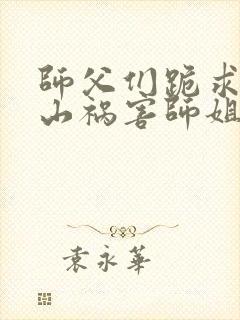 師父们跪求
山祸害師姐
袁永華